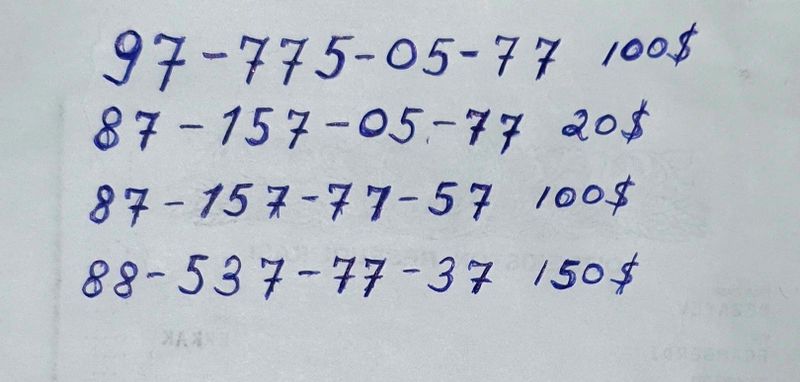 97-775-05-77 100$
87-157-05-77 20$
87-157-77-57 100$
88-537-77-37 150$